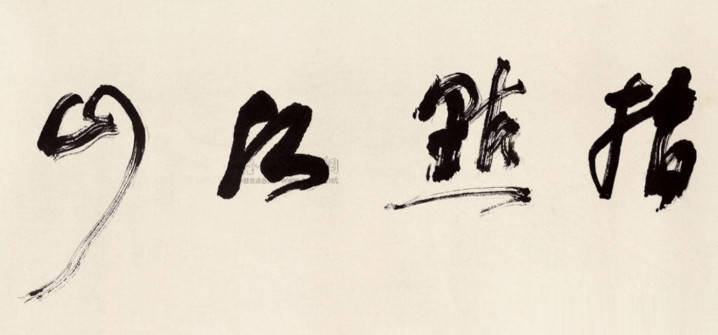 指點江山